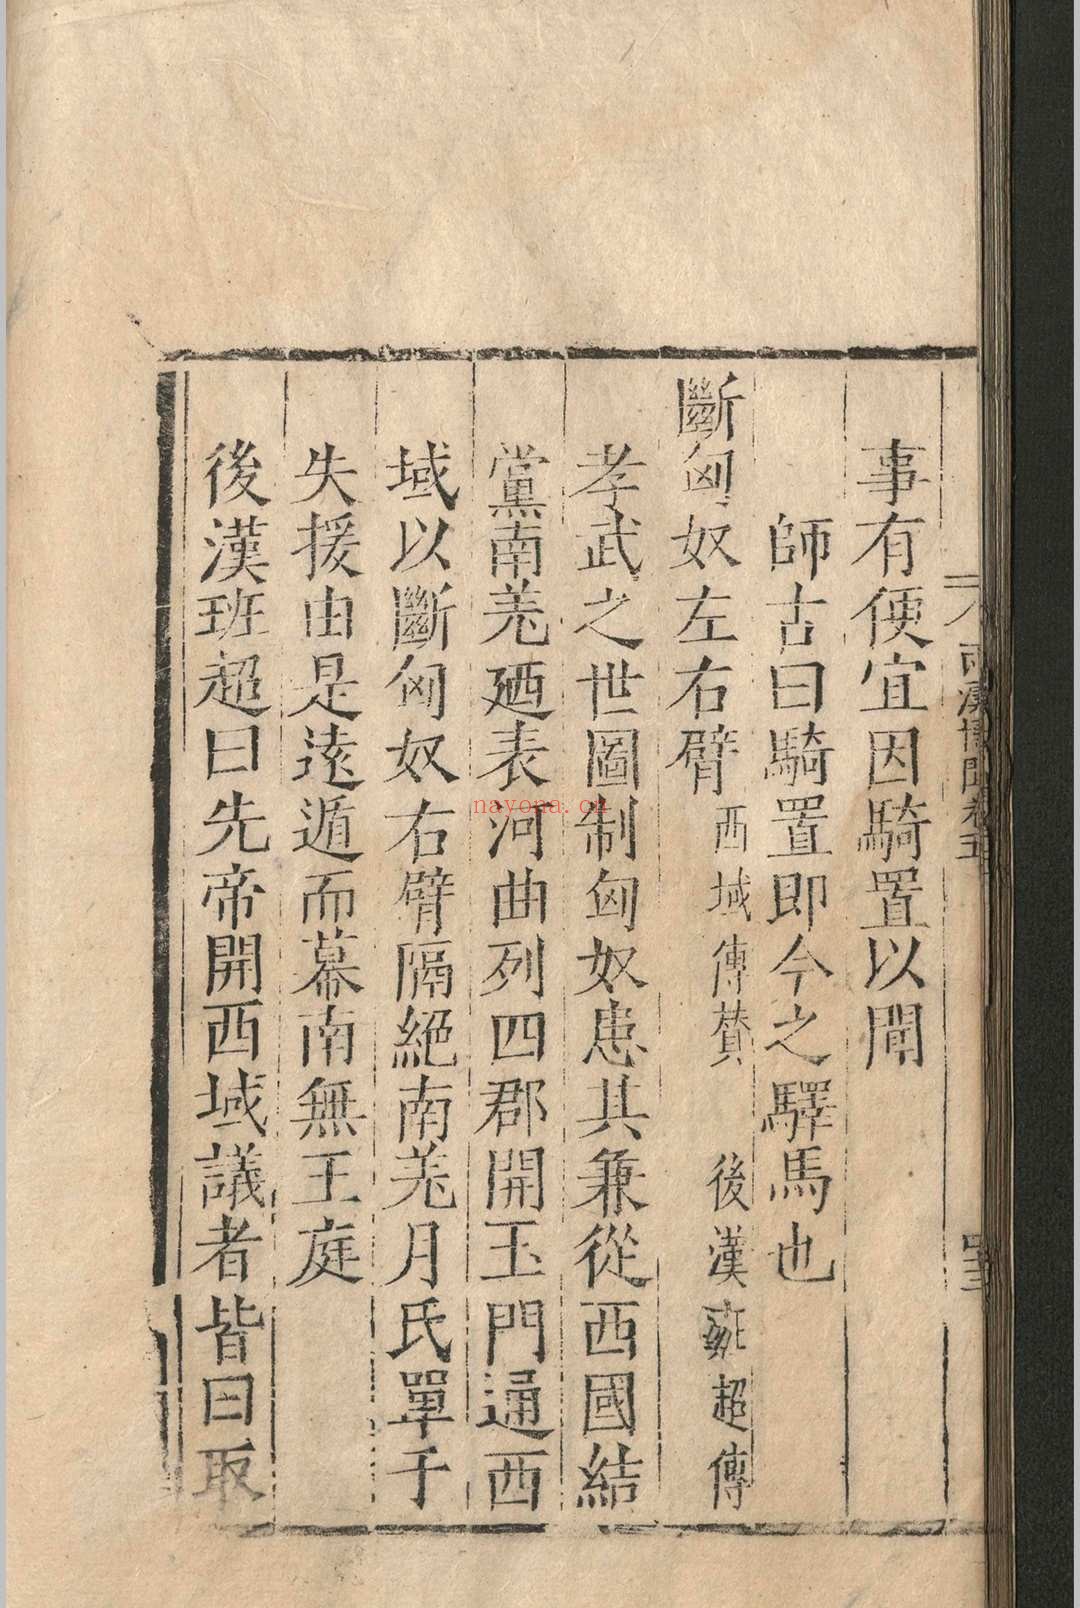 兩漢博聞卷五
事有便宜因騎置以聞
師古曰騎置即今之驛馬也
斷匈奴左右臂 西域傳賛 後漢班超傳
孝武之世圖制匈奴患其兼從西國結
黨南羌廼表河曲列四郡開玉門通西
域以斷匈奴右臂隔絕南羌月氏單于
失援由是遠遁而幕南無王庭
後漢班超曰先帝開西域議者皆曰取
nayona.cn